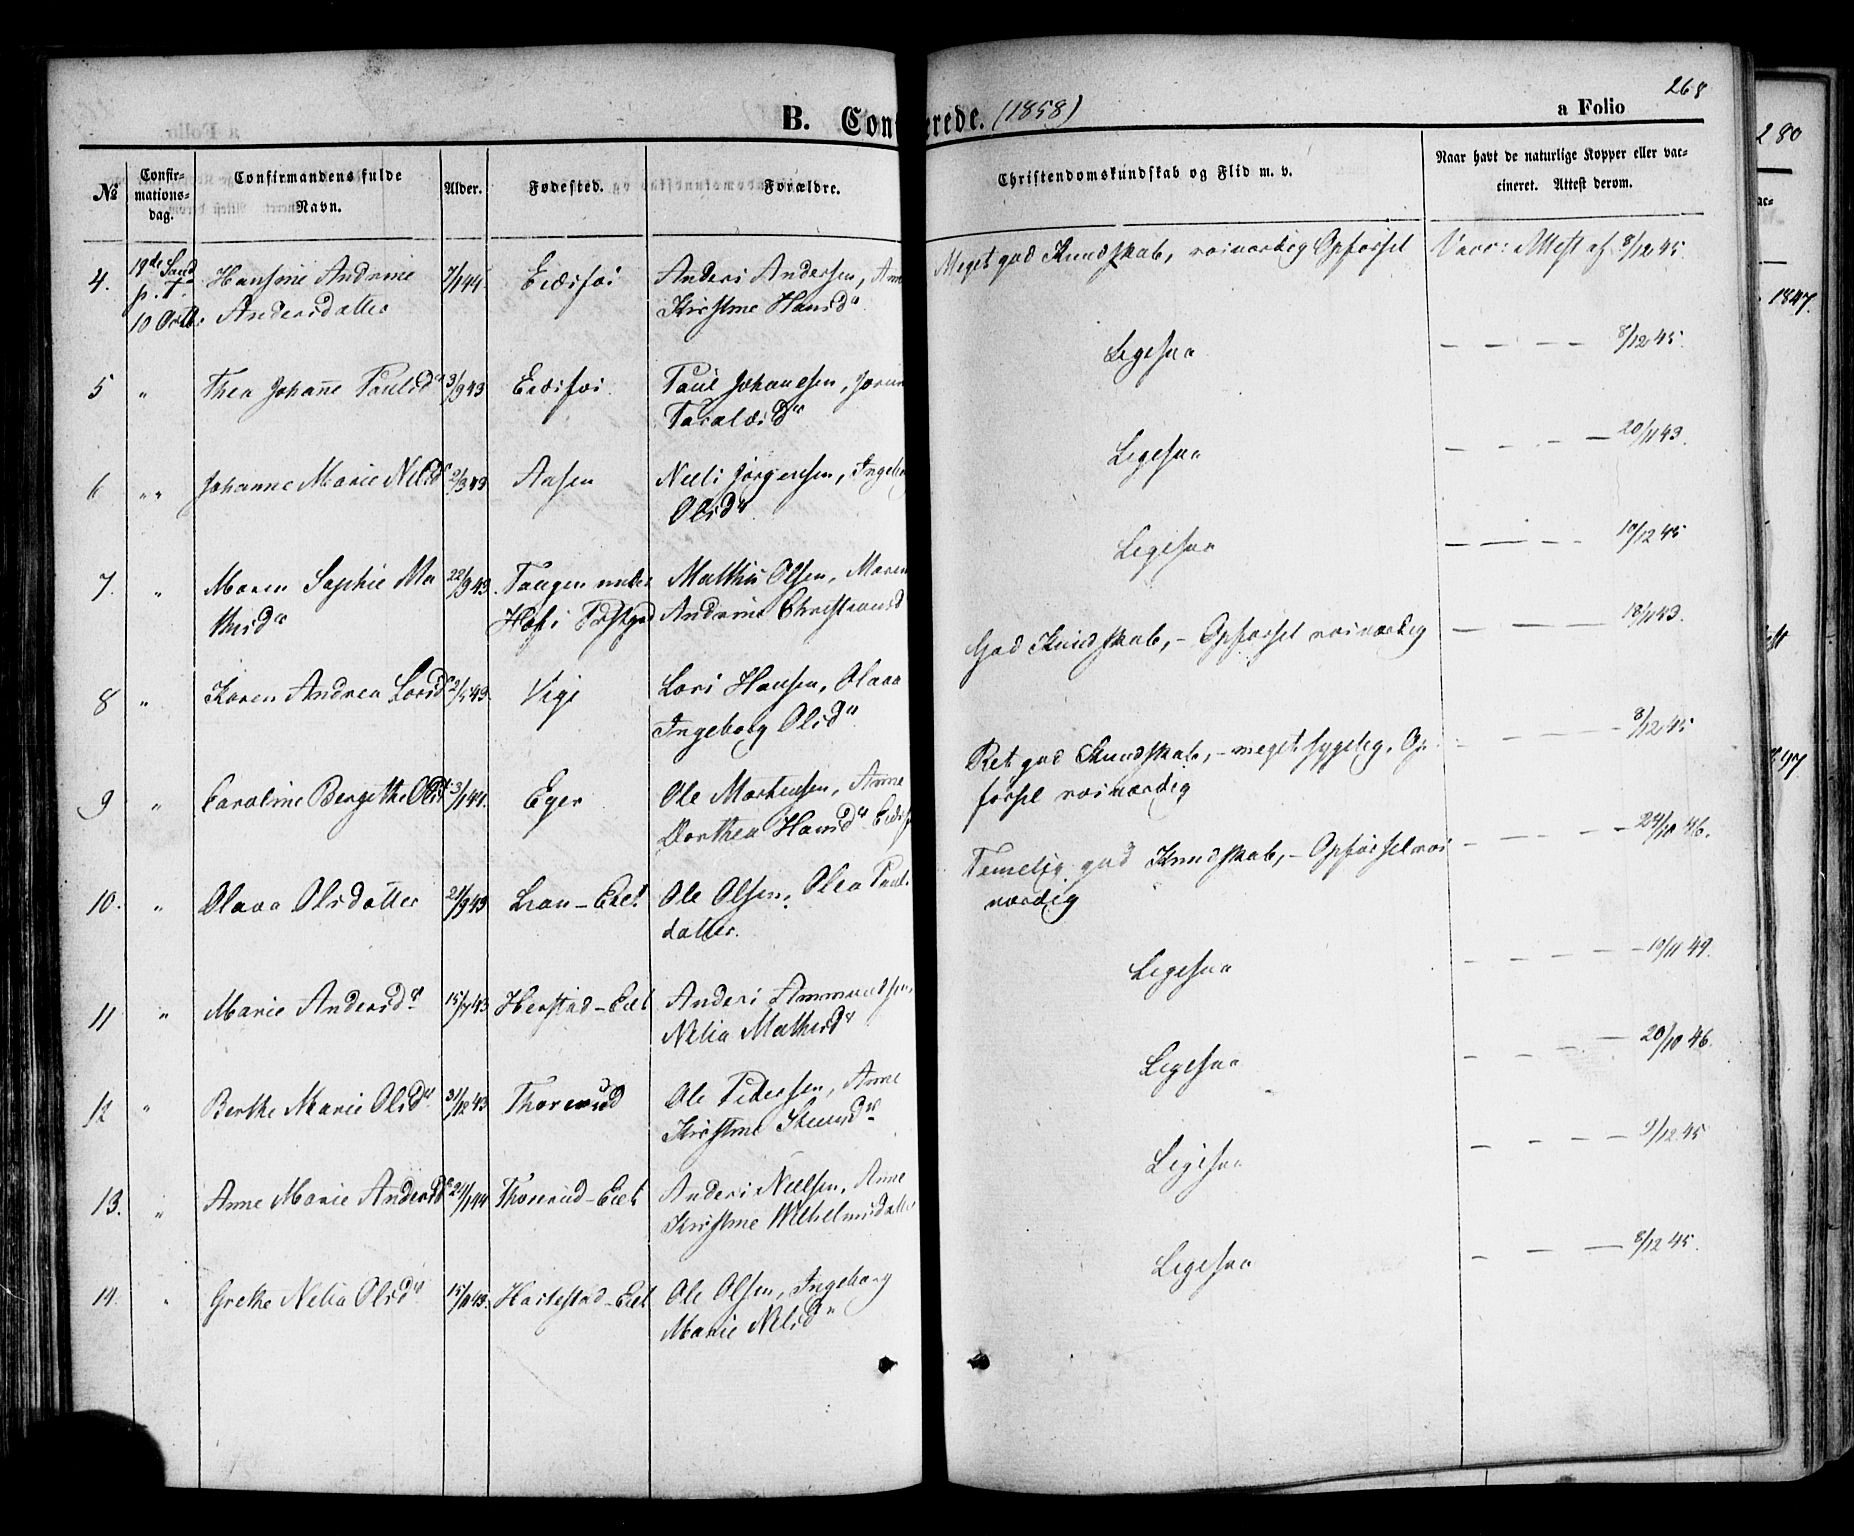 268
B. Conf erede. (1858) a Folio
№ Confirmationsdag. Confirmandens fulde Navn. Alder. Fødested. Forældre. Christendomskundskab og Flid m. v. Naar havt de naturlige Kopper eller vaccineret. Attest derom.
4. 19de Sønd p. T. 10 Octb: Hansine Andrine Andersdatter 7/1 44. Eidsfos Anders Andersen, Anne Kirstine Hansdr Meget god Kundskab, roisværdig Opførsel Vacc: Attest af 8/12 45.
5 " Thea Johanne Paulsdr 3/9 43 Eidsfos. Paul Johansen, Taraldsdr Ligesaa — — — — 8/12 45.
6 " " Johanne Marie Nilsdr 2/3 43 Aasen Niels Jörgensen, Olsdr Ligesaa — — — — 20/11 43.
7. " Maren Sophie Mathisdr 22/9 43. Tangen under Hof Mathis Olsen, Maren Andrine Christiansd Ligesaa — — — 10/12 45
8 " Karen Andrea Larsdr 2/5 43. Lars Hansen, Olava Ingeborg Olsdr God Kundskab, – Opførsel roisværdig — — — — 18/11 43.
9 " Caroline Bergithe Olsd 3/1 44. Eger Ole Martensen, Anne Dorthea Hansdr Ret god Kundskab, – meget sygelig, Opførsel roisværdig — — — — 8/12 45
10. " Olava Olsdatter 21/9 43 Ole Olsen, Olea Paulsdatter. Temelig god Kundskab, – Opførsel roisværdig — — — — 24/10 46.
11 " Marie Andersdr 15/7 43 Herstad – Eiet Anders Ammundsen, Nelia Mathisdr Ligesaa — — — — 10/11 49.
12 " Berthe Marie Olsdr 31/12 43 Thorerud Ole Pedersen, Anne Kirstine Ligesaa — — — — 20/10 46.
13. " Anne Marie Andersdr 21/1 44 Thorerud – Eiet Anders Nielsen, Anne Kirstine Wilhelmsdatter Ligesaa — — — — 9/12 45
14. " Grethe Nelia Olsdr 15/11 43. Ole Olsen, Ingeborg Marie Nilsdr Ligesaa — — — 8/12 45.
280
1847.